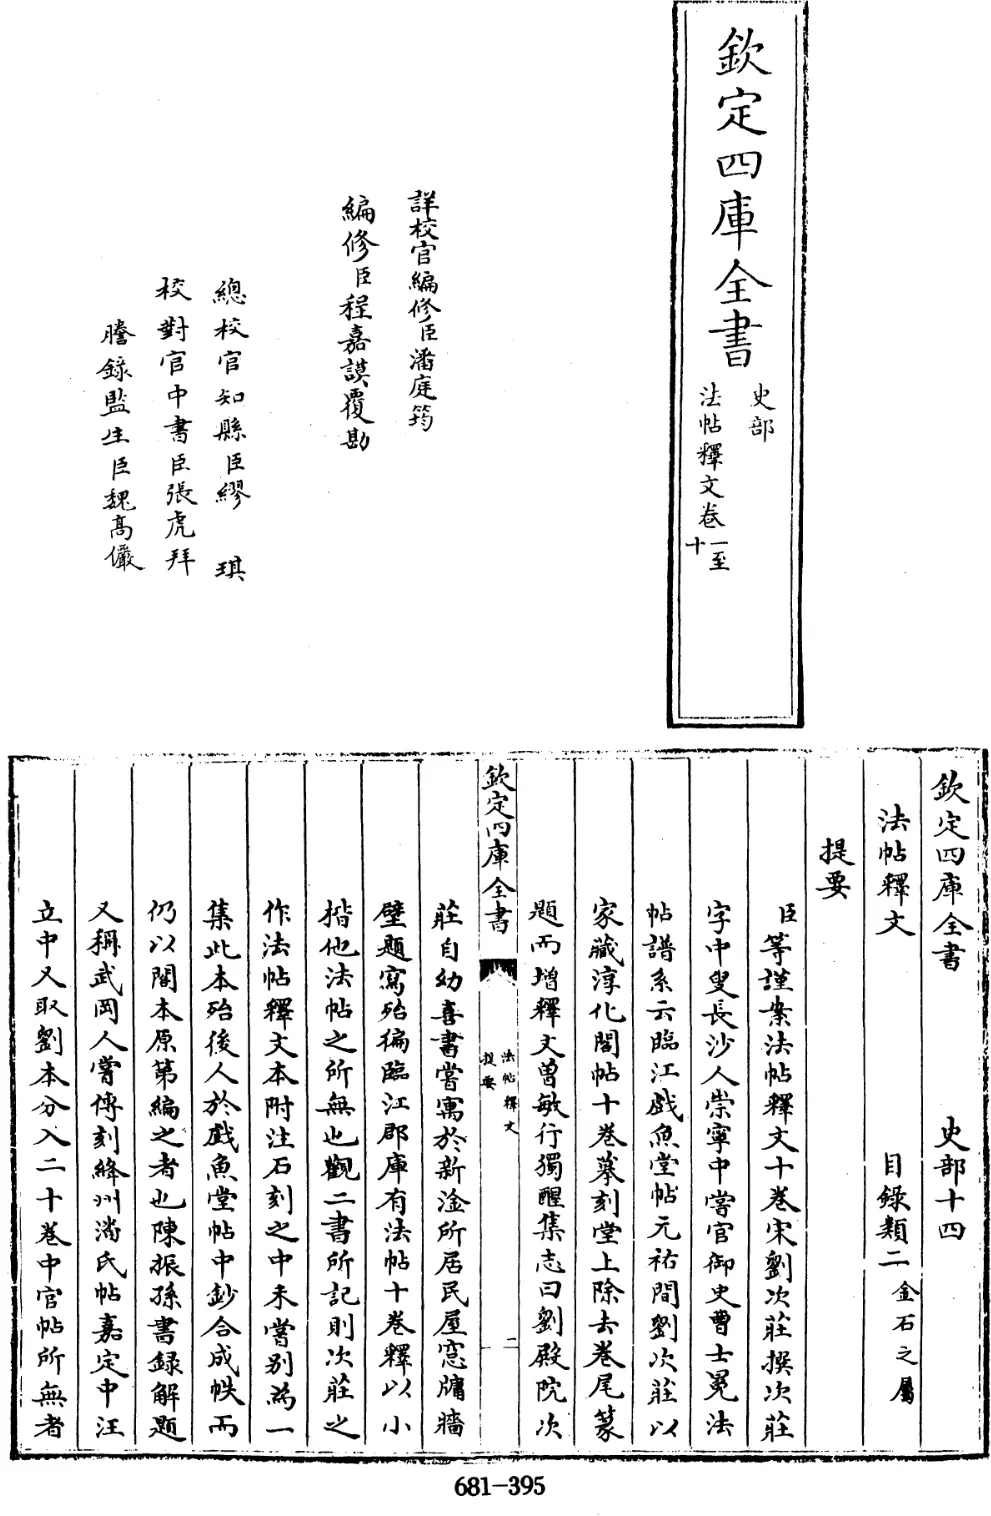 欽定四庫全書
史部
法帖釋文卷一至十
詳校官編修臣潘庭筠
編修臣程嘉謨覆勘
總校官知縣臣繆琪
校對官中書臣張虎拜
謄錄監生臣魏高儼
欽定四庫全書 史部十四
法帖釋文 目録類二金石之屬
提要
臣等謹案法帖釋文十卷宋劉次莊撰次莊
字中叟長沙人崇寧中嘗官御史曹士冕法
帖譜系云臨江戲魚堂帖元祐間劉次莊以
家藏淳化閣帖十卷摹刻堂上除去卷尾篆
題而增釋文曽敏行獨醒集志曰劉殿院次
欽定四庫全書 法帖釋文提要 二
莊自幼喜書嘗寓於新淦所居民屋窓牖牆
壁題寫殆徧臨江郡庫有法帖十卷釋以小
楷他法帖之所無也觀二書所記則次莊之
作法帖釋文本附注石刻之中未嘗别為一
集此本殆後人於戲魚堂帖中鈔合成帙而
仍以閣本原第編之者也陳振孫書録解題
又稱武岡人嘗傳刻絳州潘氏帖嘉定中汪
立中又取劉本分入二十卷中官帖所無者
681-395